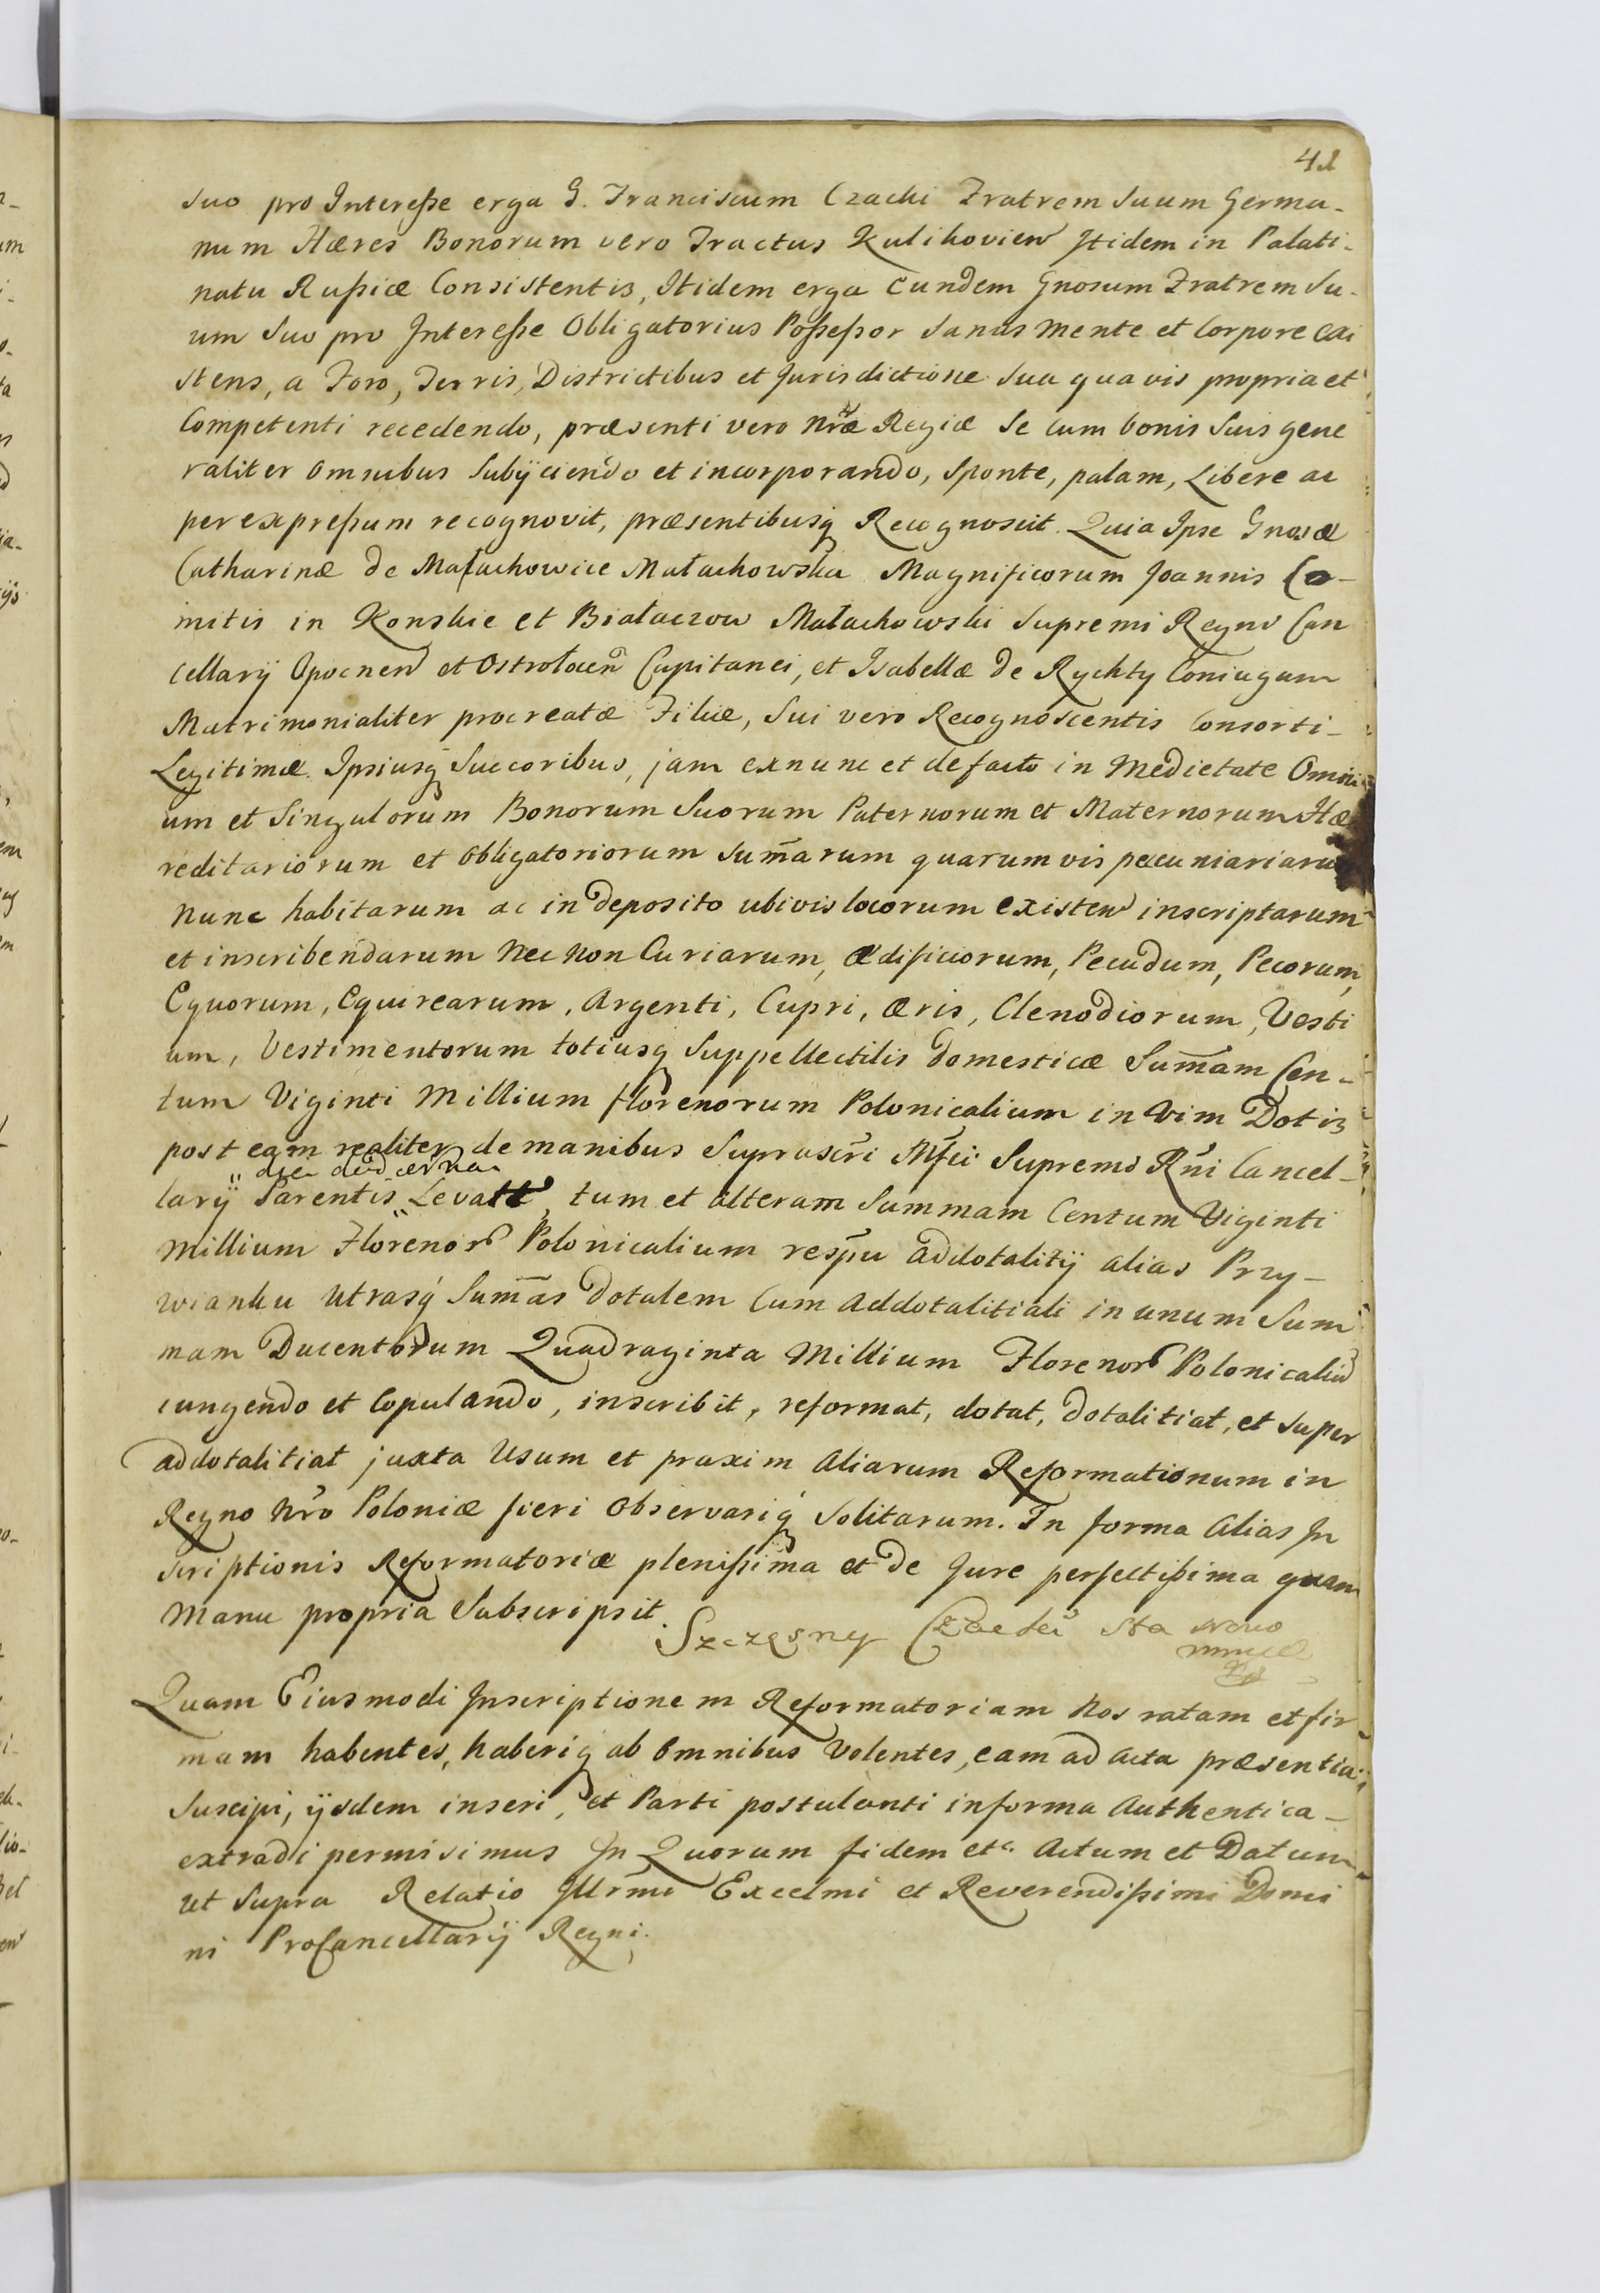 41
suo pro Interesse erga G. Franciscum Czacki Fratrem Suum Germa-
num Hæres Bonorum vero Tractus Kulikovien Itidem in Palati-
natu Russiæ Consistentis, Itidem erga Eundem Gnosum Fratrem Su-
um Suo pro Interesse Obligatorius Possessor Sanus mente et Corpore exi
stens, a Foro, Terris, Districtibus et Jurisdictione Sua quavis propria et
Competenti recedendo, præsenti vero Nræ Regiæ Se cum bonis Suis gene
raliter Omnibus Subijciendo et incorporando, Sponte, palam, Libere ac
per expressum recognovit, præsentibusq Recognoscit. Quia Ipse Gnosæ
Catharinæ de Małachowice Małachowska Magnificorum Joannis Co-
mitis in Konskie et Białaczow Małachowski Supremi Regni Can
cellarij Opocnen et Ostrołaen Capitanei, et Isabellæ de Rychty Coniugum
Matrimonialiter procreatæ Filiæ, Sui vero Recognoscentis Consorti-
Legitimæ Ipsiusq Succoribus, jam exnunc et defacto in Medietate Omni
um et Singulorum Bonorum Suorum Paternorum et Maternorum Hæ
reditariorum et Obligatoriorum Sum̄arum quarumvis pecuniariarum
Nunc habitarum ac in deposito ubivis locorum existen inscriptarum
et inscribendarum Nec non Curiarum, Ædificiorum, Pecudum, Pecorum,
Equorum, Equirearum, Argenti, Cupri, Æris, Clenodiorum, Vesti
um, Vestimentorum totiusq Suppellectilis domesticæ Sum̄am Cen-
tum Viginti Millium florenorum Polonicalium in Vim Dotis
post eam realiter de manibus Suprascri Mfci Supremi Rni Cancel-
larij Parentis Levatt, tum et alteram Summam Centum Viginti
Millium Florenor Polonicalium respu addotalitij alias Przy-
wianku Utrasq Sum̄as Dotalem Cum Addotalitiali in unum Sum
mam Ducentorum Quadraginta Millium Florenor Polonicaliu
iungendo et Copulando, inscribit, reformat, dotat, dotalitiat, et super
addotalitiat juxta Usum et praxim Aliarum Reformationum in
Regno Nro Poloniæ fieri Observariq Solitarum. In forma Alias In
scriptionis Reformatoriæ plenissima et de Jure perfectissima quam
Manu propria Subscripsit.
Szczęsny Czacki Sta
Quam Eiusmodi Inscriptionem Reformatoriam Nos ratam et fir
mam habentes, haberiq ab Omnibus Volentes, eam ad Acta præsentia
Suscipi, ijsdem inseri, et Parti postulanti in forma Authentica-
extradi permisimus In Quorum fidem etc. Actum et Datum
ut Supra Relatio Illrmi Excelmi et Reverendissimi Domi
ni Procancellarij Regni.